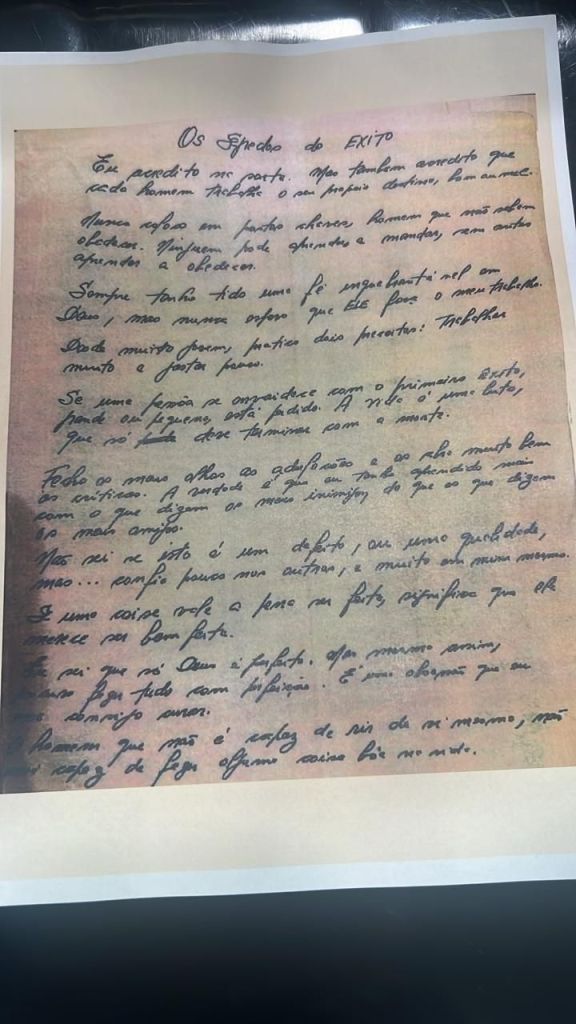 Os Segredos do EXITO
Eu acredito na sorte. Mas também acredito que
cada homem trabalha o seu próprio destino, bom ou mal.
Nunca coloco em postos chaves, homens que não sabem
obedecer. Ninguem pode aprender a mandar, sem antes
aprender a obedecer.
Sempre tenho tido uma fé inquebrantável em
Deus, mas nunca espero que ELE faça o meu trabalho.
Desde muito jovem, pratico dois preceitos: Trabalhar
muito e gastar pouco.
Se uma pessoa se envaidece com o primeiro Exito,
grande ou pequeno, está perdido. A vida é uma luta,
que só deve terminar com a morte.
Fecho os meus olhos as adulações e os abro muito bem
as criticas. A verdade é que eu tenho aprendido mais
com o que dizem os meus inimigos, do que os que dizem
os meus amigos.
Não sei se isto é um defeito, ou uma qualidade,
mas... confio pouco nos outros, e muito em mim mesmo.
uma coisa vale a pena ser feita, significa que ela
merece ser bem feita.
sei que só Deus é perfeito. Mas mesmo assim,
faço tudo com perfeição. É uma obsessão que eu
não consigo curar.
homem que não é capaz de rir de si mesmo, não
capaz de fazer alguma coisa bôa na vida.